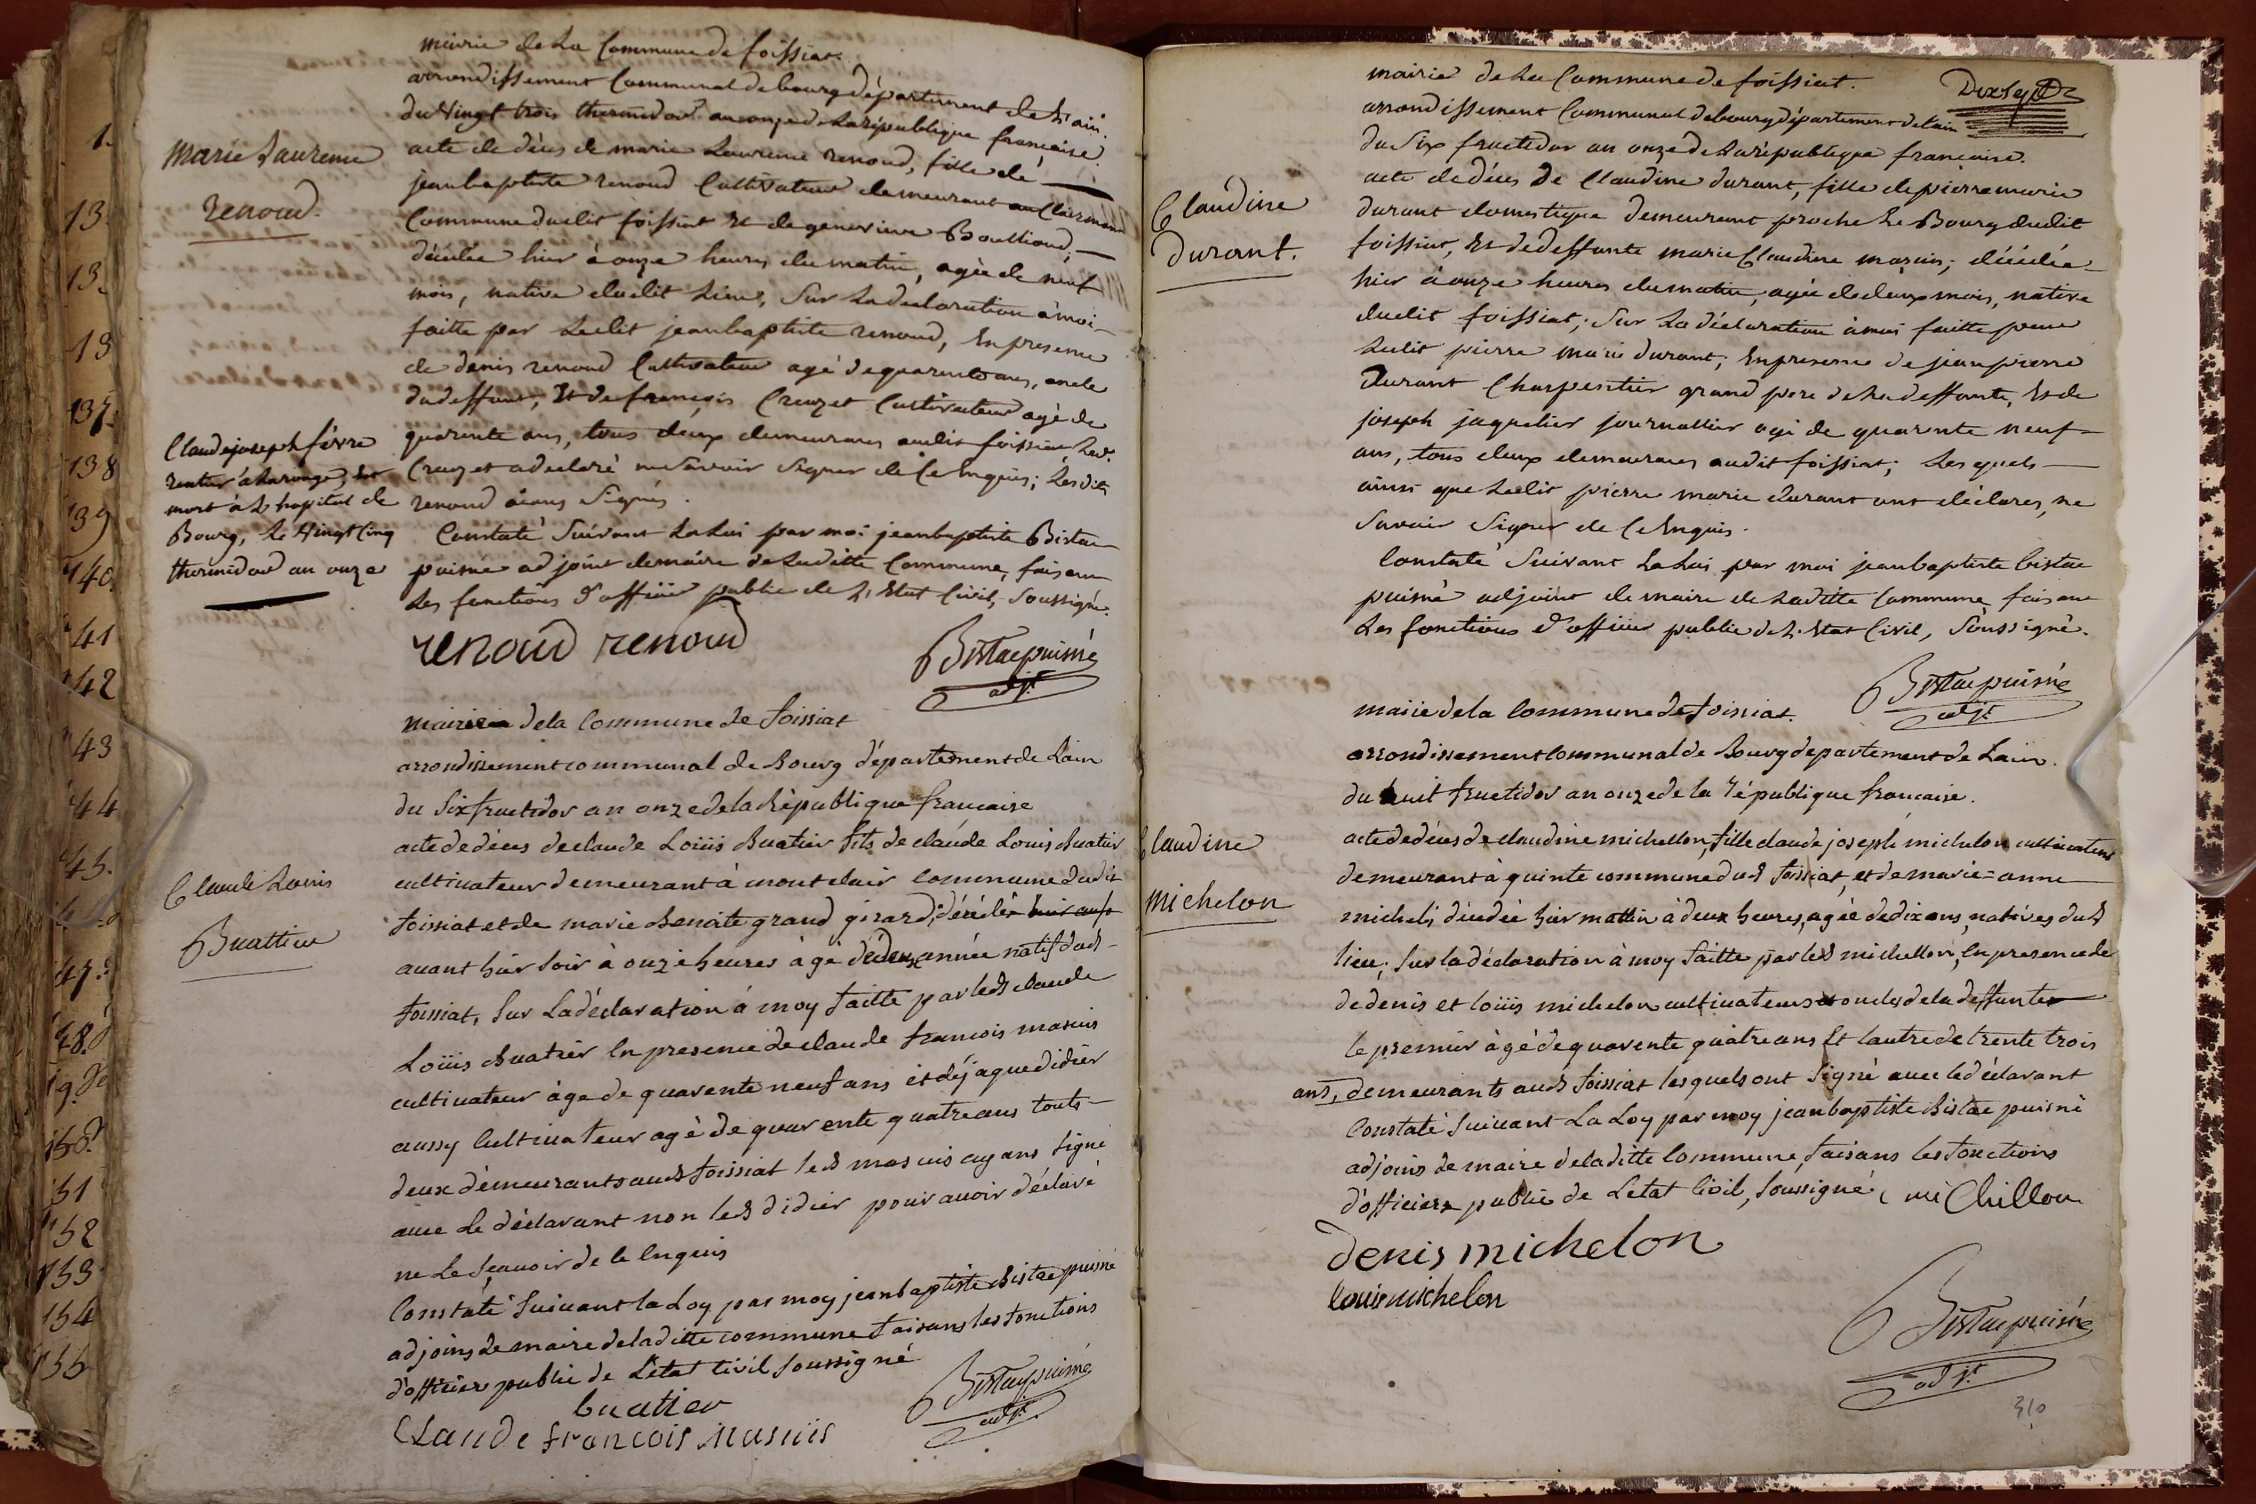 1.
13.
13.
13
137.
138
139
140.
41
142
43
44
45.
47.
48.
49.
150.
151
152
153
154
155
Marie Laurence
renoud.
mairie de La Commune de foissiat.
arrondissement Communal de bourg département de L'ain.
du Vingt trois thermidor an onze de La république francaise.
acte de décès de marie Laurence renoud, fille de
jean baptiste renoud Cultivateur demeurant au Clairmont
Commune dudit foissiat Et de genevieve Bouttioud,
décédée hier à onze heures du matin, agée de neuf
mois, native dudit Lieu, Sur La déclaration à moi
faitte par Ledit jean baptiste renoud, En presence
de denis renoud Cultivateur agé de quarente ans, oncle
du deffunt, Et de françois Creuzet Cultivateur agé de
quarente ans, tous deux demeurans audit foissiat, Led.
Creuzet a declaré ne Savoir Signer de Ce Enquis; Lesdits
renoud aians Signés.
Constaté Suivant La Loi par moi jean baptiste Bistac
puisné adjoint de maire de Laditte Commune, faisant
Les fonctions d'officier public de L'Etat Civil, Soussigné.
renoud renoud
Bistac puisné
adjt.
Claude joseph fèvre
rentier à Larouge,
mort à L'hopital de
Bourg, Le Vingt Cinq
thermidor an onze
Claude Louis
Buattier
mairie dela Commune de foissiat
arrondissement communal de Bourg département de Lain
du Six fructidor an onze de la République francaise
acte de décès de claude Loüis Buatier fils de claude Louis Buatier
cultivateur demeurant à mont clair commune dudit
foissiat et de marie Benoite grand girard, décédé hier
avant hier soir à onze heures àgé de deux année natif dud
foissiat, Sur La déclaration à moy faitte par led claude
Loüis Buatier En presence de claude francois mascuis
cultivateur àgé de quarente neuf ans et de jaque didier
aussy Cultivateur agé de quarente quatre ans touts
deux démeurants aud foissiat led mascuis ayans signé
avec Le déclarant non led didier pour avoir déclaré
ne Le Scavoir de ce Enquis
Constaté Suivant la Loy par moy jean baptiste Bistac puisné
adjoins de maire deladitte commune faisans les fonctions
d'officier public de L'état Civil Soussigné
buatier
Claude francois Mascuis
Bistac puisné
adjt.
Dix Sept
Claudine
durant.
mairie de La Commune de foissiat.
arrondissement Communal de bourg département de Lain
du Six fructidor an onze de La république francaise.
acte de décès de Claudine durant, fille de pierre marie
durant domestique demeurant proche Le Bourg dudit
foissiat, Et de deffunte marie Claudine marin; décédée
hier à onze heures du matin, agée de deux mois, native
dudit foissiat; Sur La déclaration à moi faitte par
Ledit pierre marie durant; En presence de jean pierre
Durant Charpentier grand pere de La deffunte, Et de
joseph jaquelier journallier agé de quarente neuf
ans, tous deux demeurans audit foissiat; Lesquels
ainsi que Ledit pierre marie durant ont déclarés, ne
Savoir Signer de Ce Enquis.
Constaté Suivant La Loi par moi jean baptiste bistac
puisné adjoint de maire de Laditte Commune faisant
Les fonctions d'officier public de L'Etat Civil, Soussigné.
Bistac puisné
adjt.
Claudine
Michelon
mairie dela Commune de foissiat.
arrondissement Communal de Bourg departement de Lain.
du huit fructidor an onze de la République francaise.
acte de décès de claudine michellon, fille claude joseph michelon cultivateur
demeurant à quinte commune dud foissiat, et de marie-anne
michel; décédée hier mattin à deux heures, agée de dix ans, natives dud
lieu; Sur la déclaration à moy faitte par led michellon, En presence de
de denis et loüis michelon cultivateurs oncles de la deffunte
le premier àgé de quarente quatre ans Et lautre de trente trois
ans, demeurants aud foissiat lesquels ont Signé avec le déclarant
Constaté Suivant La Loy par moy jean baptiste Bistac puisné
adjoins de maire deladitte Commune, faisans les fonctions
d'officiers public de Letat Civil, Soussigné, miChillon
denis michelon
louis michelon
Bistac puisné
adjt.
310